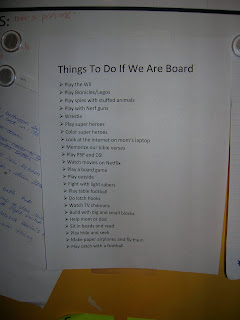 Things To Do If We Are Board
➢ Play the Wii
➢ Play Bionicles/Legos
➢ Play spies with stuffed animals
➢ Play with Nerf guns
➢ Wrestle
➢ Play super heroes
➢ Color super heroes
➢ Look at the internet on mom's laptop
➢ Memorize our bible verses
➢ Play PSP and DSI
➢ Watch movies on Netflix
➢ Play a board game
➢ Play outside
➢ Fight with light sabers
➢ Play table football
➢ Do latch hooks
➢ Watch TV channels
➢ Build with big and small blocks
➢ Help mom or dad
➢ Sit in beds and read
➢ Play hide and seek
➢ Make paper airplanes and fly them
➢ Play catch with a football